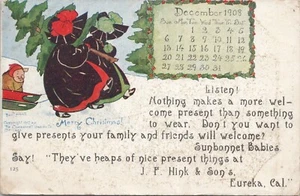 December 1908
1 2 3 4 5
6 7 8 9 10 11 12
13 14 15 16 17 18 19
20 21 22 23 24 25 26
27 28 29 30 31
Merry Christmas!
Listen!
Nothing makes a more wel-
come present than something
to wear. Don't you want to
give presents your family and friends will welcome?
Sunbonnet Babies
Say! "They've heaps of nice present things at
J. F. Hink & Son's,
Eureka, Cal."